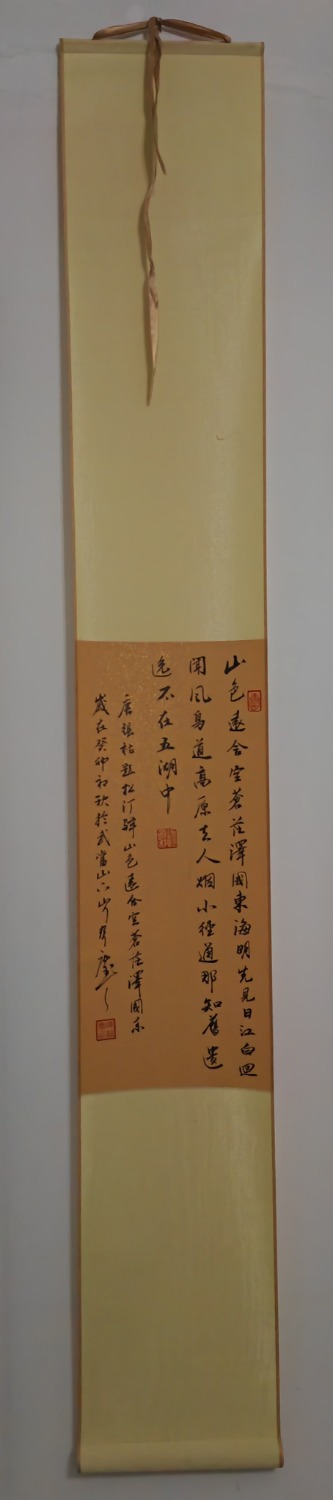 山色遠含空蒼茫澤國東海明先見日江白迴
聞風鳥道高原去人烟小徑通那知舊遺
逸不在五湖中
唐張祜題松汀驛山色遠含空蒼茫澤國東
歲在癸卯初秋於武當山下